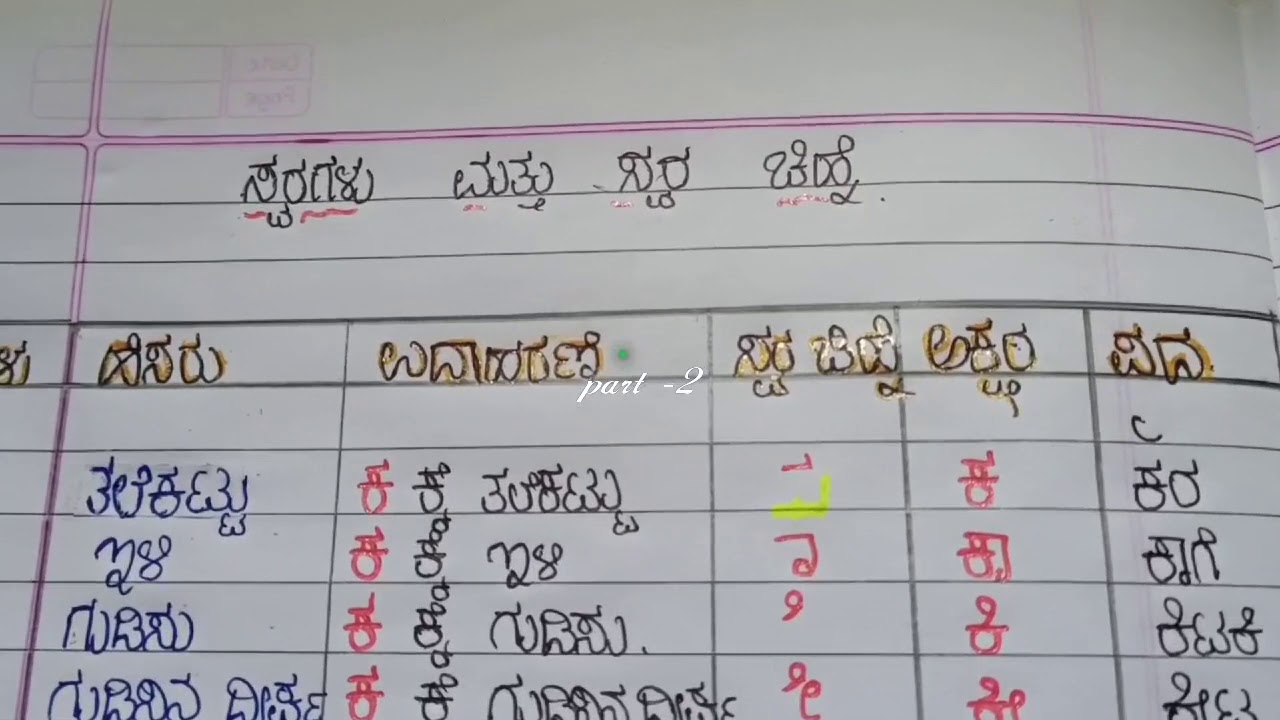 ಸ್ವರಗಳು ಮತ್ತು ಸ್ವರ ಚಿಹ್ನೆ.
ಹೆಸರು ಉದಾಹರಣೆ ಸ್ವರ ಚಿಹ್ನೆ ಅಕ್ಷರ ಪದ
part -2
ತಲೆಕಟ್ಟು ಕ ಕ್ಕೆ ತಲೆಕಟ್ಟು ಕ ಕರ
ಇಳಿ ಕ ಕ್ಕೆ ಇಳಿ ಾ ಕಾ ಕಾಗೆ
ಗುಡಿಸು ಕ ಕ್ಕೆ ಗುಡಿಸು. ಿ ಕಿ ಕಿಟಕಿ
ಗುಡಿಸಿನ ದೀರ್ಘ ಕ ಕ್ಕೆ ಗುಡಿಸಿನ ದೀರ್ಘ ೀ ಕೀ ಕೀಟ